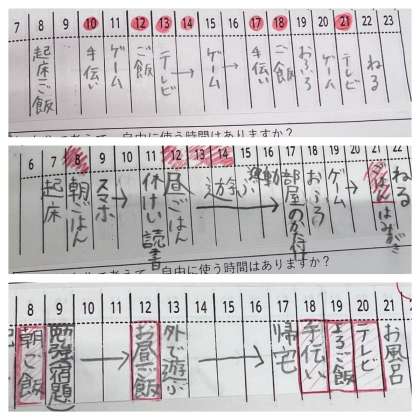 7 8 9 10 11 12 13 14 15 16 17 18 19 20 21 22 23
起床ご飯
手伝い
ゲーム
ご飯
テレビ
→
ゲーム
→
手伝い
ご飯
おふろ
ゲーム
テレビ
ねる
自由に使う時間はありますか?
6 7 8 9 10 11 12 13 14 15 16 17 18 19 20 21 22
起床
朝ごはん
スマホ
→
休けい読書
昼ごはん
遊ぶ
→
運動
部屋のかた付け
おふろ
ゲーム
→
ごはんはみがき
ねる
自由に使う時間はありますか?
8 9 10 11 12 13 14 15 16 17 18 19 20 21
朝ご飯
勉強宿題
→
お昼ご飯
外で遊ぶ
→
帰宅
手伝い
よるご飯
テレビ
お風呂